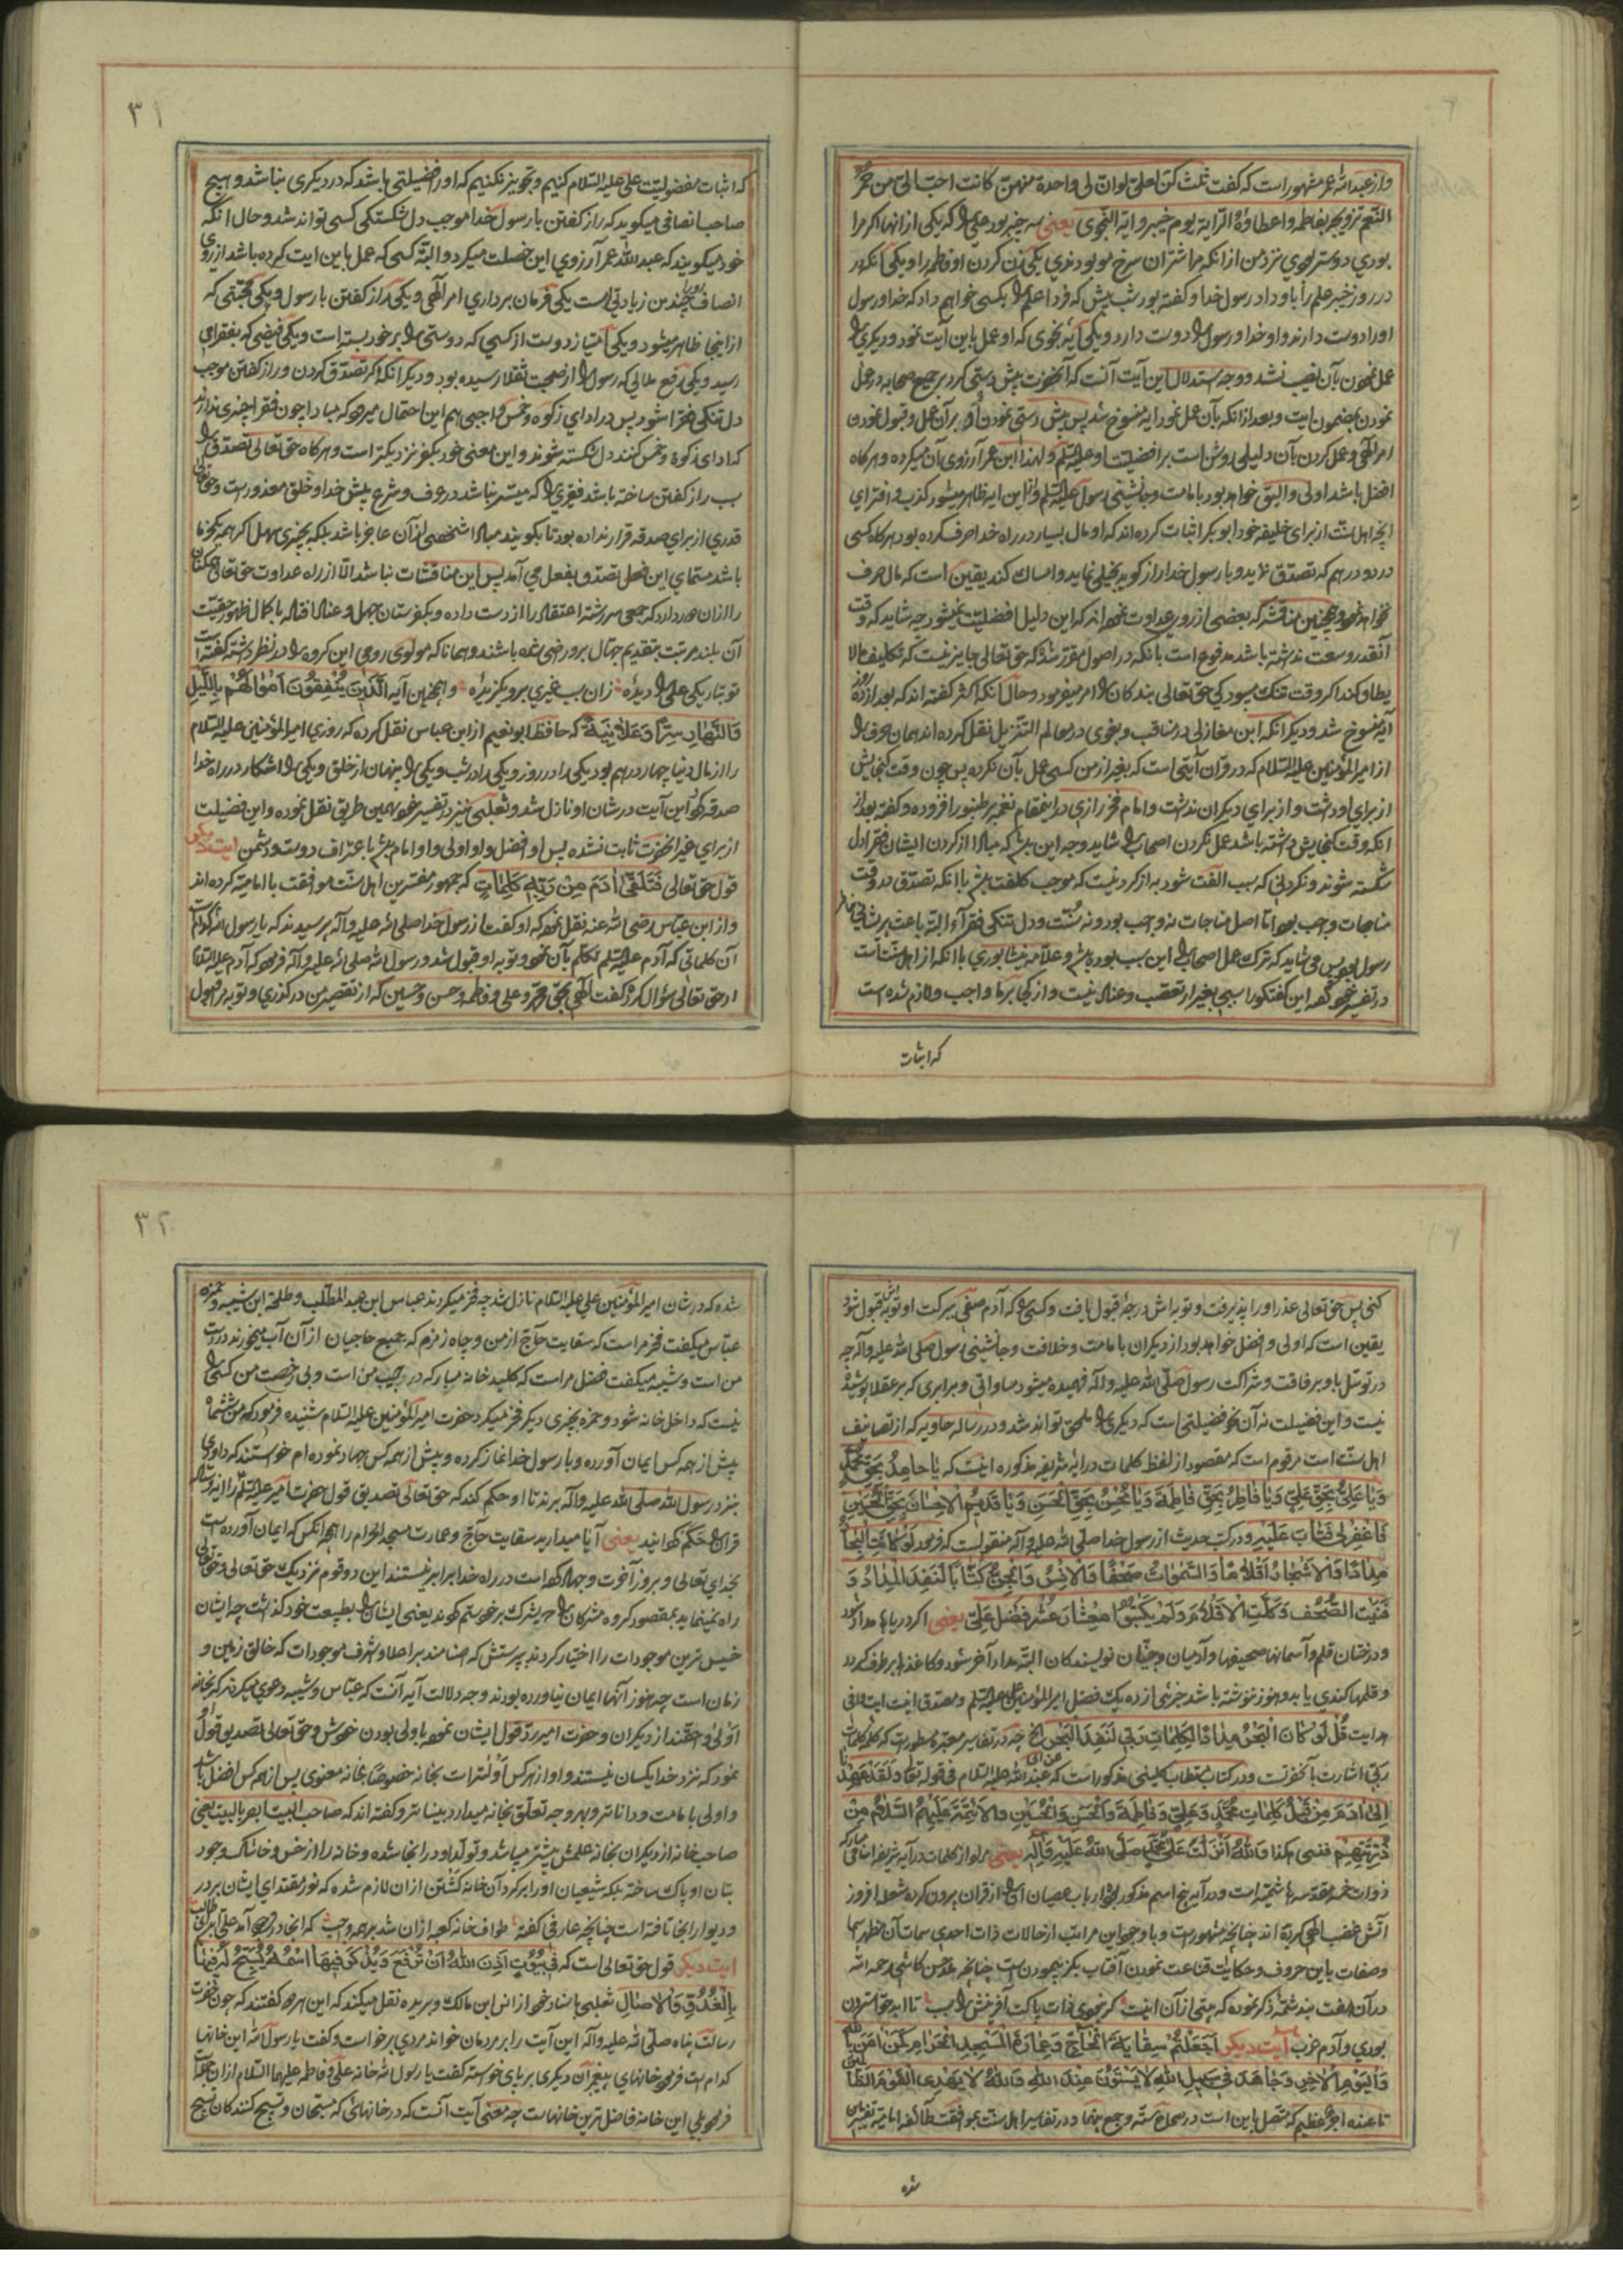 واز عبدالله عمر مشهور است که گفت ثلث کن لعلی لوان لی واحدة منهن کانت احب الی من حمر
النعم تزویجه بفاطمه واعطاؤه الرایة یوم خیبر وایة النجوی یعنی سه چیز بود علی را که یکی از انها اکر مرا
بودی دوستر بودی نزد من از انکه مرا شتران سرخ مو بودندی یکی زن کردن او فاطمه را و یکی آنکه در
در روز خیبر علم را باو داد رسول خدا و کفته بود شب پیش که فردا علم را بکسی خواهم داد که خدا و رسول
اورا دوست دارند و او خدا و رسول را دوست دارد و یکی آیه نجوی که او عمل باین آیت نمود و دیکری را
عمل نمودن بآن نصیب نشد و وجه استدلال این آیت آنست که آنحضرت پیش دستی کرد بر جمیع صحابه در عمل
نمودن بمضمون ایت و بعد از انکه بآن عمل نمود ایه منسوخ شد پس پیش دستی نمودن او بر آن عمل و قبول نمودن
امر الهی و عمل کردن بآن دلیلی روشن است بر افضلیت او علیه السلام و لهذا ابن عمر آرزوی آن میکرده و هرکاه
افضل باشد اولی و الیق خواهد بود بامامت و جانشینی رسول علیه السلم و از این ایه ظاهر میشود کذب و افترای
انچه اهل سنت از برای خلیفه خود ابوبکر اثبات کرده اند که او مال بسیار در راه خدا صرف کرده بود هرکاه کسی
در دو درهم که تصدق نماید و با رسول خدا راز کوید بخیلی نماید و امساک کند یقین است که مال صرف
نخواهد نمود و همچنین مناقشه که بعضی از روی عداوت نموده اند که این دلیل افضلیت نمیشود چه شاید که وقت
آنقدر وسعت نداشته باشد مدفوع است بانکه در اصول مقرر شده که حق تعالی جایز نیست که تکلیف ما لا
یطاق کند اکر وقت تنک میبود کی حق تعالی بندکان را امر میفرمود و حال آنکه اکثر کفته اند که بعد از ده روز
آیه منسوخ شد و دیکر انکه ابن مغازلی در مناقب و بغوی در معالم التنزیل نقل کرده اند همان حرف را
از امیر المؤمنین علیه السلام که در قران آیتی است که بغیر از من کسی عمل بآن نکرده پس چون وقت کنجایش
از برای او داشت و از برای دیکران نداشت و امام فخر رازی در اینمقام نغمه بر طنبور افزوده و کفته بعد از
انکه وقت کنجایش داشته باشد عمل نکردن اصحاب را شاید وجه این باشد که مبادا از کردن ایشان فقرا دل
شکسته شوند و نکردنی که سبب الفت شود به از کردنیست که موجب کلفت باشد با انکه تصدق در وقت
مناجات واجب بود اما اصل مناجات نه واجب بود و نه سنت و دل تنکی فقرا البته باعث پریشانی خاطر
رسول بود پس می شاید که ترک عمل اصحاب را این سبب بوده باشد و علامه نیشابوری با انکه از اهل سنت است
در تفسیر خود کفته این کفتکو را سببی بغیر از تعصب و عناد نیست و از کجا برما واجب و لازم شده است
که اثبات
۳۱
که اثبات مفضولیت علی علیه السلام کنیم و تجویز نکنیم که او را فضیلتی باشد که در دیکری نباشد و هیچ
صاحب انصافی میکوید که راز کفتن با رسول خدا موجب دل شکستکی کسی تواند شد و حال انکه
خود میکویند که عبدالله عمر آرزوی این خصلت میکرد و البته کسی که عمل باین ایت کرده باشد از روی
انصاف او را چندین زیادتی است یکی فرمان برداری امر الهی و یکی راز کفتن با رسول و یکی محبتی که
از اینجا ظاهر میشود و یکی امتیاز دوست از کسی که دوستی را بر خود بسته است و یکی فیضی که بفقرا می
رسید و یکی رفع ملالی که رسول را از صحبت ثقلا رسیده بود و دیکر انکه اکر تصدق کردن و راز کفتن موجب
دل تنکی فقرا شود پس در ادای زکوة و خمس واجبی هم این احتمال میرود که مبادا چون فقرا چیزی ندارند
که ادای زکوة و خمس کنند دل شکسته شوند و این معنی خود بکفر نزدیکتر است و هرکاه حق تعالی تصدق را
سبب راز کفتن ساخته باشد فقیری را که میسر نباشد در عرف و شرع پیش خدا و خلق معذور است و حق تعالی
قدری از برای صدقه قرار نداده بود تا بکویند مبادا شخصی از آن عاجز باشد بلکه بچیزی سهل اکر همه یکخرما
باشد مسمای این فعل تصدق بفعل می آمد پس این مناقشات نباشد الا از راه عداوت حق تعالی همکنان
را از ان دور دارد که جمعی سر رشته اعتقاد را از دست داده و بکفرستان جهل و عناد افتاده با کمال ظهور حقیت
آن بلند مرتبت بتقدیم جهال بر و راضی شده باشند و همانا که مولوی رومی این کروه را در نظر داشته کفته است
تو بتاریکی علی را دیده زان سبب غیری برو بکزیده و همچنین آیه الَّذِینَ یُنْفِقُونَ اَمْوَالَهُمْ بِاللَّیْلِ
وَالنَّهَارِ سِرًّا وَعَلَانِیَةً که حافظ ابو نعیم از ابن عباس نقل کرده که روزی امیر المؤمنین علیه السلام
را از مال دنیا چهار درهم بود یکی را در روز و یکی را در شب و یکی را پنهان از خلق و یکی را اشکار در راه خدا
صدقه کرد این آیت در شان او نازل شد و ثعلبی نیز در تفسیر خود بهمین طریق نقل نموده و این فضیلت
از برای غیر انحضرت ثابت نشده پس او افضل و او اولی و او امام باشد باعتراف دوست و دشمن ایت دیکر
قول حق تعالی فَتَلَقَّی اٰدَمُ مِنْ رَبِّهِ کَلِمَاتٍ که جمهور مفسرین اهل سنت موافقت با امامیه کرده اند
و از ابن عباس رضی الله عنه نقل نموده که او کفت از رسول خدا صلی الله علیه وآله پرسیدند که یا رسول الله کدام است
آن کلماتی که آدم علیه السلم تکلم بآن نمود و توبه او قبول شد و رسول الله صلی الله علیه وآله فرمود که آدم علیه السلام
از حق تعالی سؤال کرد و کفت الهی بحق محمد و علی و فاطمه و حسن و حسین که از تقصیر من درکذری و توبه مرا قبول
کنی پس حق تعالی عذر او را پذیرفت و توبه اش درجه قبول یافت و کسی را که آدم صفی ببرکت او توبه اش قبول شود
یقین است که اولی و افضل خواهد بود از دیکران بامامت و خلافت و جانشینی رسول صلی الله علیه وآله چه
در توسل باو بر فاقت و شراکت رسول صلی الله علیه وآله فهمیده میشود مساواتی و برابری که بر عقلا پوشیده
نیست و این فضیلت نه آن نحو فضیلتی است که دیکری را ملحق تواند شد و در رساله حاویه که از تصانیف
اهل سنت است مرقوم است که مقصود از لفظ کلمات در ایه شریفه مذکوره اینست که یَا حَامِدُ بِحَقِّ مُحَمَّدٍ
وَیَا عَلِیُّ بِحَقِّ عَلِیٍّ وَیَا فَاطِرُ بِحَقِّ فَاطِمَةَ وَیَا مُحْسِنُ بِحَقِّ الْحَسَنِ وَیَا قَدِیمَ الْاِحْسَانِ بِحَقِّ الْحُسَیْنِ
فَاغْفِرْ لِی فَتَابَ عَلَیْهِ و در کتب حدیث از رسول خدا صلی الله علیه وآله منقولست که فرمود لَوْ کَانَتِ الْبِحَارُ
مِدَادًا وَالْاَشْجَارُ اَقْلَامًا وَالسَّمٰوَاتُ صُحُفًا وَالْاِنْسُ وَالْجِنُّ کُتَّابًا لَنَفِدَ الْمِدَادُ وَ
فَنِیَتِ الصُّحُفُ وَکَلَّتِ الْاَقْلَامُ وَلَمْ یَکْتُبُوا مِعْشَارَ عُشْرِ فَضْلِ عَلِیٍّ یعنی اکر دریاها مداد شود
و درختان قلم و آسمانها صحیفها و آدمیان و جنیان نویسندکان البته مداد آخر شود و کاغذها برطرف کردد
و قلمها کندی یابد و هنوز ننوشته باشد جزئی از ده یک فضل امیر المؤمنین علی علیه السلم و مصدق اینست ایت وافی
هدایت قُلْ لَوْ کَانَ الْبَحْرُ مِدَادًا لِکَلِمَاتِ رَبِّی لَنَفِدَ الْبَحْرُ الخ چه در تفاسیر معتبره مسطورست که کلمه کلمات
ربی اشارت بآنحضرتست و در کتاب مستطاب کلینی مذکور است که عن ابی عبدالله علیه السلام فی قوله تعالی وَلَقَدْ عَهِدْنَا
اِلٰی اٰدَمَ مِنْ قَبْلُ کَلِمَاتٍ مُحَمَّدٍ وَعَلِیٍّ وَفَاطِمَةَ وَالْحَسَنِ وَالْحُسَیْنِ وَالْاَئِمَّةِ عَلَیْهِمُ السَّلَامُ مِنْ
ذُرِّیَّتِهِمْ فنسی هکذا وَاللّٰهِ اُنْزِلَتْ عَلٰی مُحَمَّدٍ صَلَّی اللّٰهُ عَلَیْهِ وَآلِهِ یعنی مراد از کلمات در آیه شریفه اسامی مبارکه
ذوات خمسه مقدسه هاشمیه است و در آیه پنج اسم مذکور بود
آتش غضب الهی کردیده اند چنانچه مشهور است و با وجود این مراتب از حالات ذات احدی سمات آن مظهر سما
وصفات باین حروف و حکایات قناعت نمودن آفتاب بکز پیمودن است چنانچه ملا حسن کاشی رحمه الله
در آن هفت بند شمه ذکر نموده که بیتی از آن اینست کر نبودی ذات پاکت آفرینش را سبب تا ابد حوا سترون
بودی و آدم عزب آیت دیکر اَجَعَلْتُمْ سِقَایَةَ الْحَاجِّ وَعِمَارَةَ الْمَسْجِدِ الْحَرَامِ کَمَنْ اٰمَنَ بِاللّٰهِ
وَالْیَوْمِ الْاٰخِرِ وَجَاهَدَ فِی سَبِیلِ اللّٰهِ لَا یَسْتَوُونَ عِنْدَ اللّٰهِ وَاللّٰهُ لَا یَهْدِی الْقَوْمَ الظَّالِمِینَ
تا عنده اجر عظیم که متصل باین است در صحاح سته و جمع بینها و در تفاسیر اهل سنت بموافقت طائفه امامیه تفسیر
شده
۳۲
شده که در شان امیر المؤمنین علی علیه السلام نازل شد چه فخر میکردند عباس ابن عبدالمطلب و طلحه ابن شیبه و حمزه
عباس میکفت فخر مراست که سقایت حاج از من و چاه زمزم که جمیع حاجیان از آن آب میخورند در دست
من است و شیبه میکفت فضل مراست که کلید خانه مبارکه در جیب من است و بی رخصت من کسی را
نیست که داخل خانه شود و حمزه بچیزی دیکر فخر میکرد حضرت امیر المؤمنین علیه السلام شنیده فرمود که من شش ماه
پیش از همه کس ایمان آورده و با رسول خدا نماز کرده و پیش از همه کس جهاد نموده ام خواستند که داوری
بنزد رسول الله صلی الله علیه وآله برند تا او حکم کند که حق تعالی تصدیق قول حضرت امیر علیه السلم را ایه فرستاد
قران را حکم کردانید یعنی آیا میدارید سقایت حاج و عمارت مسجد الحرام را همچو انکس که ایمان آورده است
بخدای تعالی و بروز آخرت و جهاد کرده است در راه خدا برابر نیستند این دو قوم نزدیک حق تعالی و حق تعالی
راه نمینماید بمقصود کروه مشرکان را که بشرک بر خود ستم کردند یعنی ایشان را بطبیعت خود کذاشت چه ایشان
خسیس ترین موجودات را اختیار کردند بپرستش که اصنامند بر اعلا و اشرف موجودات که خالق زمین و
زمان است چه هنوز آنها ایمان نیاورده بودند و وجه دلالت آیه آنست که عباس و شیبه دعوی میکردند که بخانه
اولی و احقند از دیکران و حضرت امیر رد قول ایشان نموده باولی بودن خویش و حق تعالی تصدیق قول او
نمود که نزد خدا یکسان نیستند و او از هر کس اولیتر است بخانه خصوصا بخانه معنوی پس از همه کس افضل باشد
و اولی بامامت و داناتر و بهر وجه تعلق بخانه میدارد بیناتر و کفته اند که صاحب البیت ابصر بالبیت یعنی
صاحب خانه از دیکران بخانه علمش بیشتر میباشد و تولد او در انجا شده و خانه را از خس و خاشاک وجود
بتان او پاک ساخته بلکه شیعیان او را بر کرد آن خانه کشتن از ان لازم شده که نور مقتدای ایشان بر در
و دیوار انجا تافته است چنانچه عارفی کفته طواف خانه کعبه از ان شد بر همه واجب که انجا در وجود آمد علی ابن ابی طالب
ایت دیکر قول حق تعالی است که فِی بُیُوتٍ اَذِنَ اللّٰهُ اَنْ تُرْفَعَ وَیُذْکَرَ فِیهَا اسْمُهُ یُسَبِّحُ لَهُ فِیهَا
بِالْغُدُوِّ وَالْاٰصَالِ ثعلبی باسناد خود از انس ابن مالک و بریده نقل میکند که این هر دو کفتند که چون حضرت
رسالت پناه صلی الله علیه وآله این آیت را بر مردمان خواند مردی برخواست و کفت یا رسول الله این خانها
کدام است فرمود خانهای پیغمبران دیکری بر پای خواسته کفت یا رسول الله خانه علی و فاطمه علیهما السلام از ان جمله است
فرمود بلی این خانه فاضل ترین خانهاست چه معنی آیت آنست که در خانهائی که مسبحان و تسبیح کنندکان تسبیح